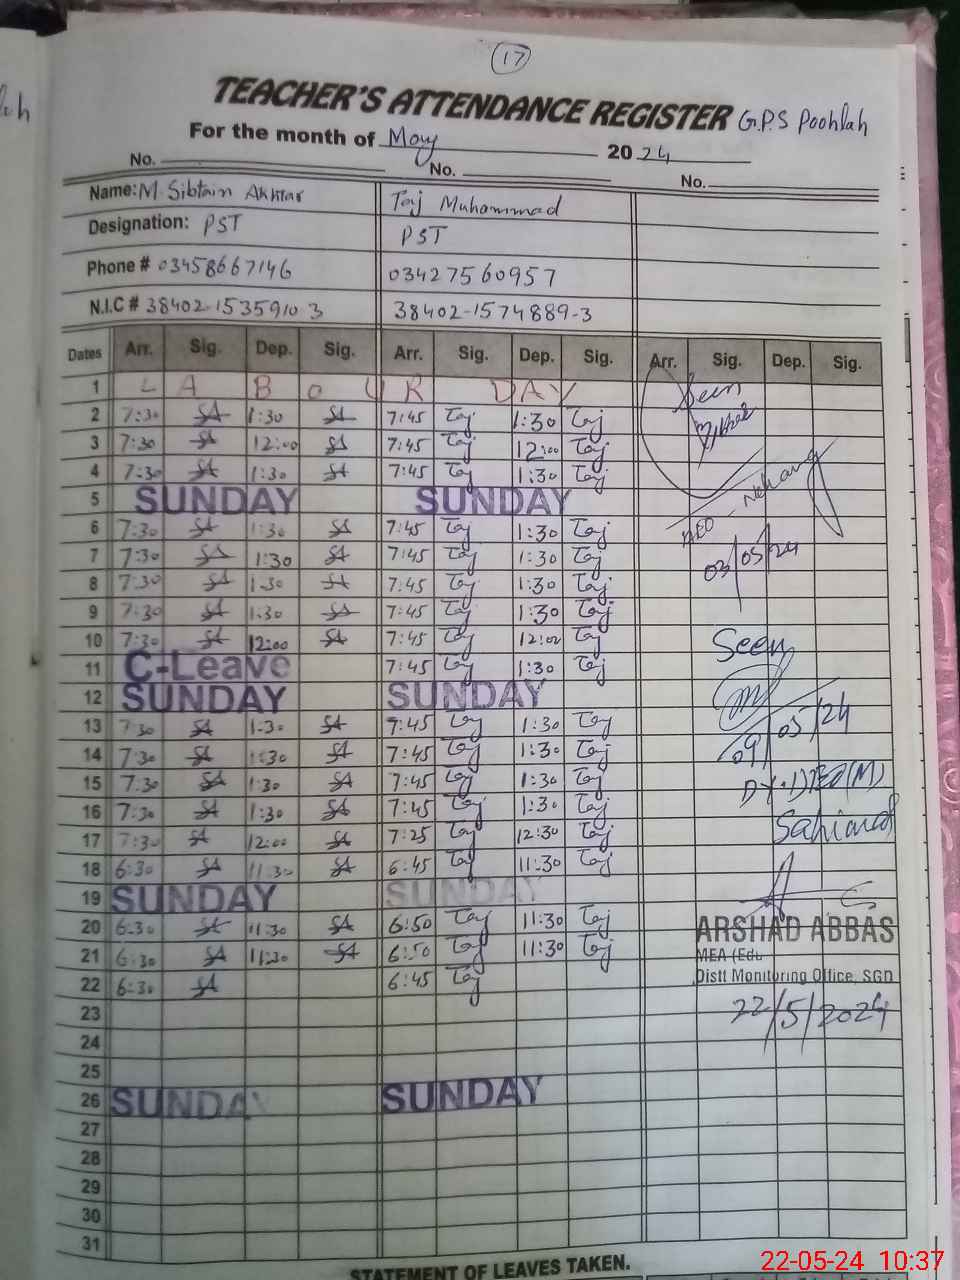 17
TEACHER'S ATTENDANCE REGISTER G.P.S Poohlah
For the month of May 2024
No. No. No.
Name: M. Sibtain Akhtar Taj Muhammad
Designation: PST PST
Phone # 03458667146 03427560957
N.I.C # 38402-1535910-3 38402-1574889-3
Dates Arr. Sig. Dep. Sig. Arr. Sig. Dep. Sig. Arr. Sig. Dep. Sig.
1 LABOUR DAY Seen
2 7:30 SA 1:30 SA 7:45 Taj 1:30 Taj
3 7:30 SA 12:00 SA 7:45 Taj 12:00 Taj
4 7:30 SA 1:30 SA 7:45 Taj 1:30 Taj
5 SUNDAY SUNDAY
6 7:30 SA 1:30 SA 7:45 Taj 1:30 Taj
7 7:30 SA 1:30 SA 7:45 Taj 1:30 Taj 03/05/24
8 7:30 SA 1:30 SA 7:45 Taj 1:30 Taj
9 7:30 SA 1:30 SA 7:45 Taj 1:30 Taj
10 7:30 SA 12:00 SA 7:45 Taj 12:00 Taj Seen
11 C-Leave 7:45 Taj 1:30 Taj
12 SUNDAY SUNDAY
13 7:30 SA 1:30 SA 7:45 Taj 1:30 Taj 09/05/24
14 7:30 SA 1:30 SA 7:45 Taj 1:30 Taj
15 7:30 SA 1:30 SA 7:45 Taj 1:30 Taj DY.DEO(M)
16 7:30 SA 1:30 SA 7:45 Taj 1:30 Taj
17 7:30 SA 12:00 SA 7:25 Taj 12:30 Taj
18 6:30 SA 11:30 SA 6:45 Taj 11:30 Taj
19 SUNDAY SUNDAY
20 6:30 SA 11:30 SA 6:50 Taj 11:30 Taj ARSHAD ABBAS
21 6:30 SA 11:30 SA 6:50 Taj 11:30 Taj MEA (Edu
22 6:30 SA 6:45 Taj Distt Monitoring Office, SGD
23 22/5/2024
24
25
26 SUNDAY SUNDAY
27
28
29
30
31
STATEMENT OF LEAVES TAKEN.
22-05-24 10:37